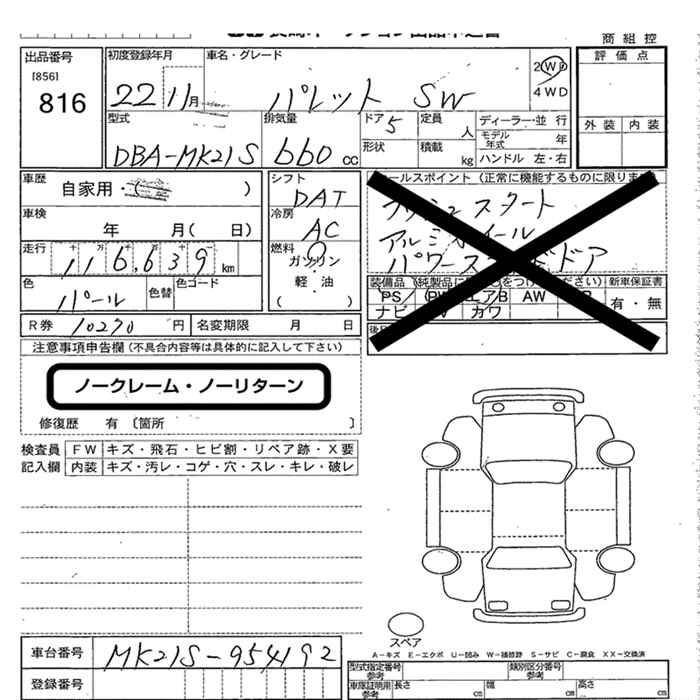 商組控
出品番号
[856]
816
初度登録年月
22 11月
車名・グレード
パレット SW
2WD
4WD
評価点
外装 内装
型式
DBA-MK21S
排気量
660 cc
ドア 5
形状
定員 人
積載 kg
ディーラー・並行
モデル年式 年
ハンドル 左・右
車歴
自家用・
車検
年 月( 日)
走行
十 万 千
116,639 km
色
パール
色替
色コード
シフト
DAT
冷房
AC
燃料
ガソリン
軽・油
( )
セールスポイント (正常に機能するものに限ります
プッシュスタート
アルミホイール
パワースライドドア
装備品 (純製品に をつけ ださい) 新車保証書
PS PW エアB AW
ナビ TV カワ
有・無
R券 10270 円
名変期限 月 日
注意事項申告欄 (不具合内容等は具体的に記入して下さい)
ノークレーム・ノーリターン
修復歴 有 〔箇所 〕
検査員 FW キズ・飛石・ヒビ割・リペア跡・X要
記入欄 内装 キズ・汚レ・コゲ・穴・スレ・キレ・破レ
スペア
A−キズ E−エクボ U−凹み W−補修跡 S−サビ C−腐食 XX−交換済
車台番号 MK21S-954192
登録番号
型式指定番号 参考
類別区分番号 参考
車庫証明用 参考 長さ cm 幅 cm 高さ cm